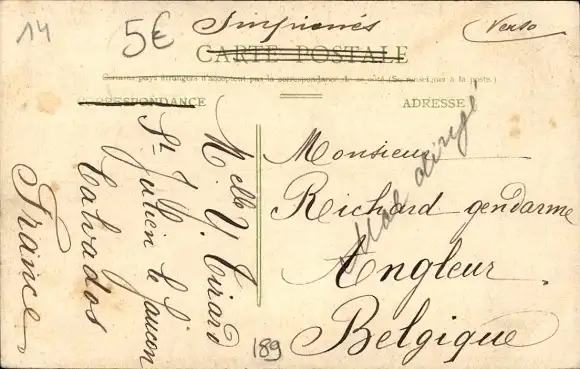 14
5€
Imprimés
Verso
CARTE POSTALE
Certains pays étrangers n'acceptent pas la correspondance de ce côté (Se renseigner à la poste.)
CORRESPONDANCE
ADRESSE
Melle Y. Tirard
St Julien le faucon
Calvados
France
Monsieur
Richard gendarme
Angleur
Belgique
Mal dirigé
189